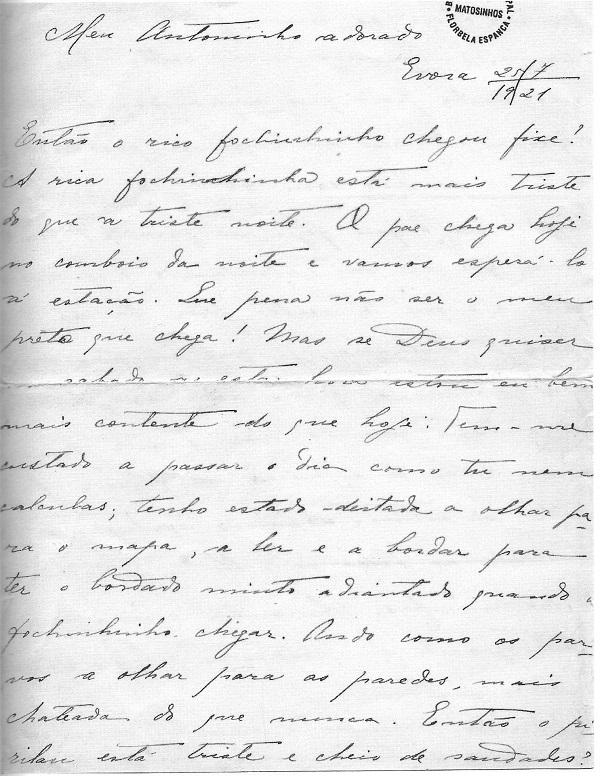 MATOSINHOS
FLORBELA ESPANCA
Meu Antoninho adorado
Evora 25/7
19 21
Então o rico fochinhinho chegou fixe!
A rica fochinhinha está mais triste
do que a triste noite. O pae chega hoje
no comboio da noite e vamos esperá-lo
á estação. Que pena não ser o meu
preto que chega! Mas se Deus quiser
sabado a esta hora estou eu bem
mais contente do que hoje. Tem-me
custado a passar o dia como tu nem
calculas; tenho estado deitada a olhar pa-
ra o mapa, a ler e a bordar para
ter o bordado muito adiantado quando o
fochinhinho chegar. Ando como os par-
vos a olhar para as paredes, mais
chateada do que nunca. Então o pi-
rilau está triste e cheio de saudades?